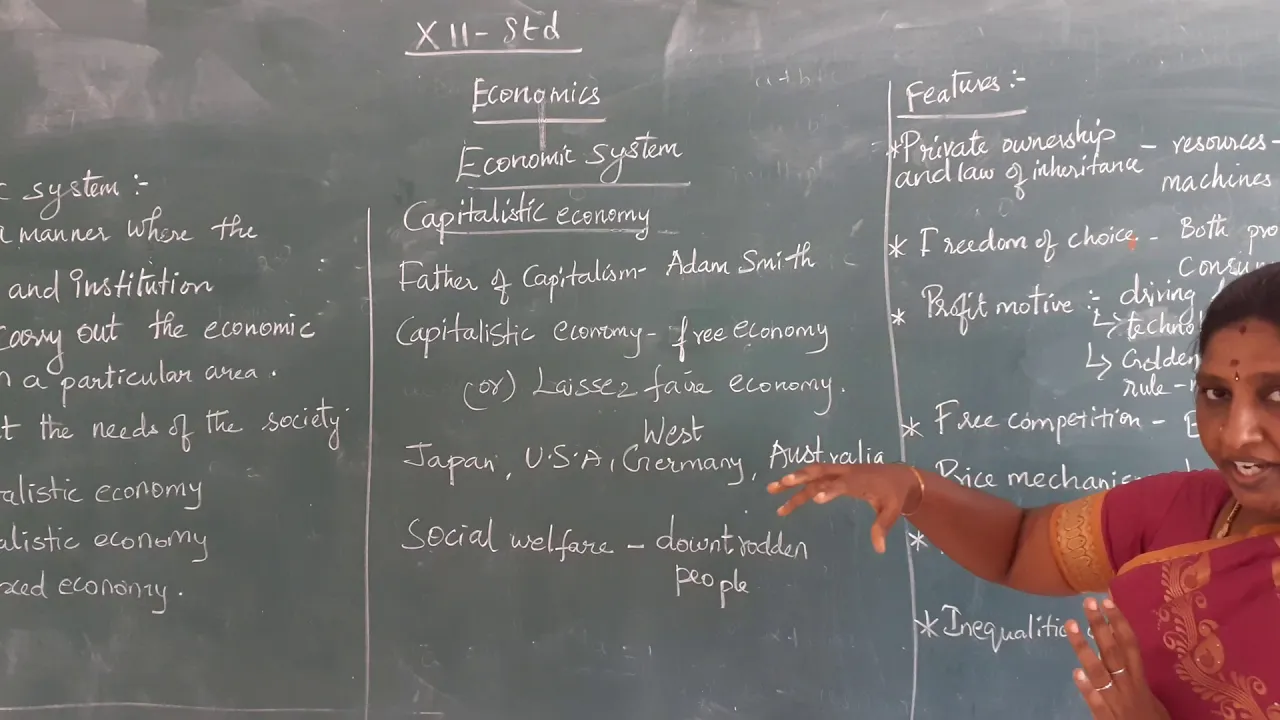 XII - Std
Economics
Economic system
system :-
manner where the
and institution
carry out the economic
a particular area.
the needs of the society.
economy
economy
economy.
Capitalistic economy
Father of Capitalism - Adam Smith
Capitalistic economy - free economy
(or) Laissez faire economy.
West
Japan, U.S.A, Germany, Australia
Social welfare - downtrodden
people
Features :-
* Private ownership - resources -
and law of inheritance machines
* Freedom of choice - Both
* Profit motive :- driving
rule -
* Free competition -
Price mechanism
*
*